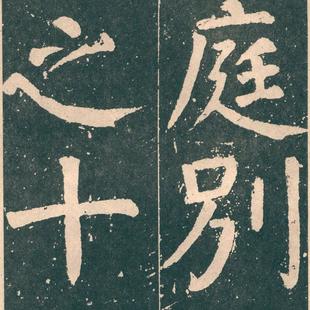 庭别
之十